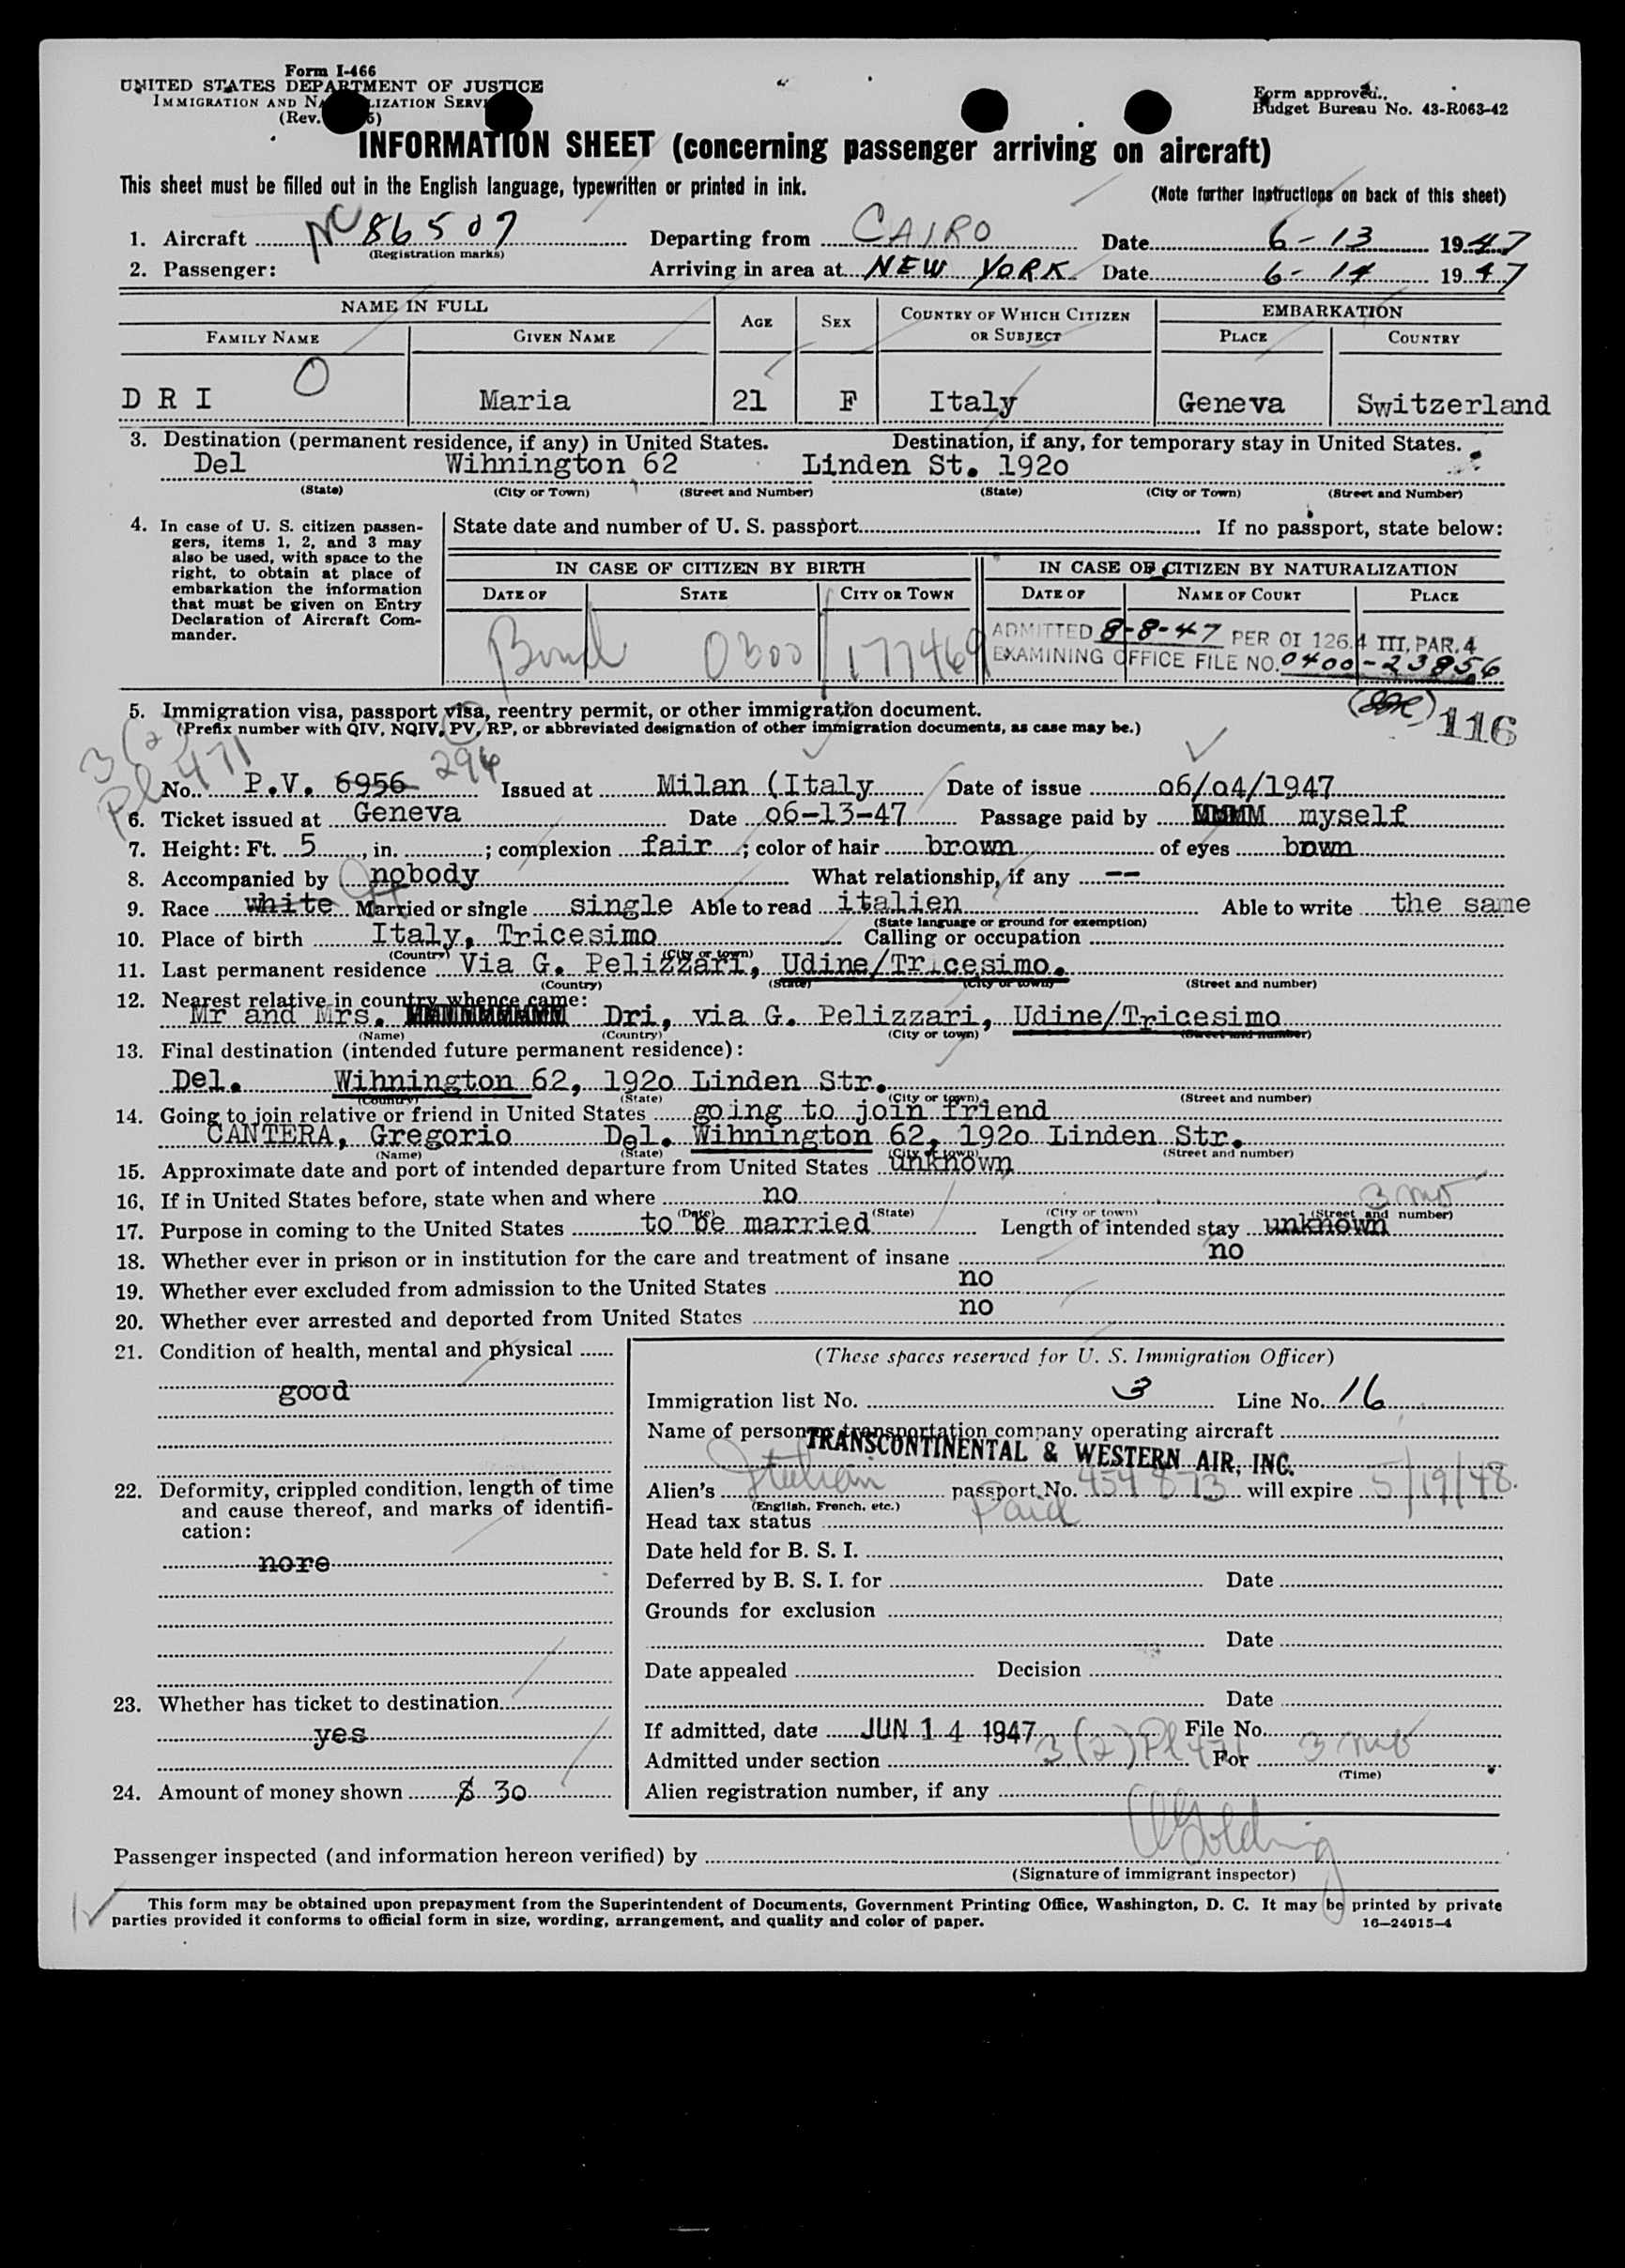 Form I-466
UNITED STATES DEPARTMENT OF JUSTICE
IMMIGRATION AND NA LIZATION SERVI
(Rev. 5)
Form approved.
Budget Bureau No. 43-R063-42
INFORMATION SHEET (concerning passenger arriving on aircraft)
This sheet must be filled out in the English language, typewritten or printed in ink.
(Note further instructions on back of this sheet)
1. Aircraft NC 86507 Departing from CAIRO Date 6-13 1947
(Registration marks)
2. Passenger: Arriving in area at NEW YORK Date 6-14 1947
NAME IN FULL AGE SEX COUNTRY OF WHICH CITIZEN OR SUBJECT EMBARKATION
FAMILY NAME GIVEN NAME PLACE COUNTRY
O
D R I Maria 21 F Italy Geneva Switzerland
3. Destination (permanent residence, if any) in United States. Destination, if any, for temporary stay in United States.
Del Wihnington 62 Linden St. 192o
(State) (City or Town) (Street and Number) (State) (City or Town) (Street and Number)
4. In case of U. S. citizen passen-
gers, items 1, 2, and 3 may
also be used, with space to the
right, to obtain at place of
embarkation the information
that must be given on Entry
Declaration of Aircraft Com-
mander.
State date and number of U. S. passport If no passport, state below:
IN CASE OF CITIZEN BY BIRTH IN CASE OF CITIZEN BY NATURALIZATION
DATE OF STATE CITY OR TOWN DATE OF NAME OF COURT PLACE
Bond 0300/177469
ADMITTED 8-8-47 PER OI 126.4 III, PAR. 4
EXAMINING OFFICE FILE NO. 0400-23856
116
5. Immigration visa, passport visa, reentry permit, or other immigration document.
(Prefix number with QIV, NQIV, PV, RP, or abbreviated designation of other immigration documents, as case may be.)
3(2) Pl 471
294
No. P.V. 6956 Issued at Milan (Italy Date of issue o6/o4/1947
6. Ticket issued at Geneva Date o6-13-47 Passage paid by MMMM myself
7. Height: Ft. 5, in. ; complexion fair; color of hair brown of eyes bnwn
8. Accompanied by nobody What relationship, if any --
9. Race white Married or single single Able to read italien Able to write the same
(State language or ground for exemption)
10. Place of birth Italy, Tricesimo Calling or occupation
(Country) (City or town)
11. Last permanent residence Via G. Pelizzari, Udine/Tricesimo.
(Country) (State) (City or town) (Street and number)
12. Nearest relative in country whence came:
Mr and Mrs. Dri, via G. Pelizzari, Udine/Tricesimo
(Name) (Country) (City or town) (Street and number)
13. Final destination (intended future permanent residence):
Del. Wihnington 62, 192o Linden Str.
(Country) (State) (City or town) (Street and number)
14. Going to join relative or friend in United States going to join friend
CANTERA, Gregorio Del. Wihnington 62, 192o Linden Str.
(Name) (State) (City or town) (Street and number)
15. Approximate date and port of intended departure from United States unknown
16. If in United States before, state when and where no
(Date) (State) (City or town) (Street and number)
3 mo
17. Purpose in coming to the United States to be married Length of intended stay unknown
18. Whether ever in prison or in institution for the care and treatment of insane no
19. Whether ever excluded from admission to the United States no
20. Whether ever arrested and deported from United States no
21. Condition of health, mental and physical
good
22. Deformity, crippled condition, length of time
and cause thereof, and marks of identifi-
cation:
nore
23. Whether has ticket to destination
yes
24. Amount of money shown $ 30
(These spaces reserved for U. S. Immigration Officer)
Immigration list No. 3 Line No. 16
Name of person or transportation company operating aircraft
TRANSCONTINENTAL & WESTERN AIR, INC.
Alien's Italian passport No. 454873 will expire 5/19/48.
(English, French, etc.)
Head tax status Paid
Date held for B. S. I.
Deferred by B. S. I. for Date
Grounds for exclusion
Date
Date appealed Decision
Date
If admitted, date JUN 14 1947 File No.
Admitted under section 3(2) Pl 471 For 3 mo
(Time)
Alien registration number, if any
Passenger inspected (and information hereon verified) by Golding
(Signature of immigrant inspector)
This form may be obtained upon prepayment from the Superintendent of Documents, Government Printing Office, Washington, D. C. It may be printed by private
parties provided it conforms to official form in size, wording, arrangement, and quality and color of paper.
16—24915-4